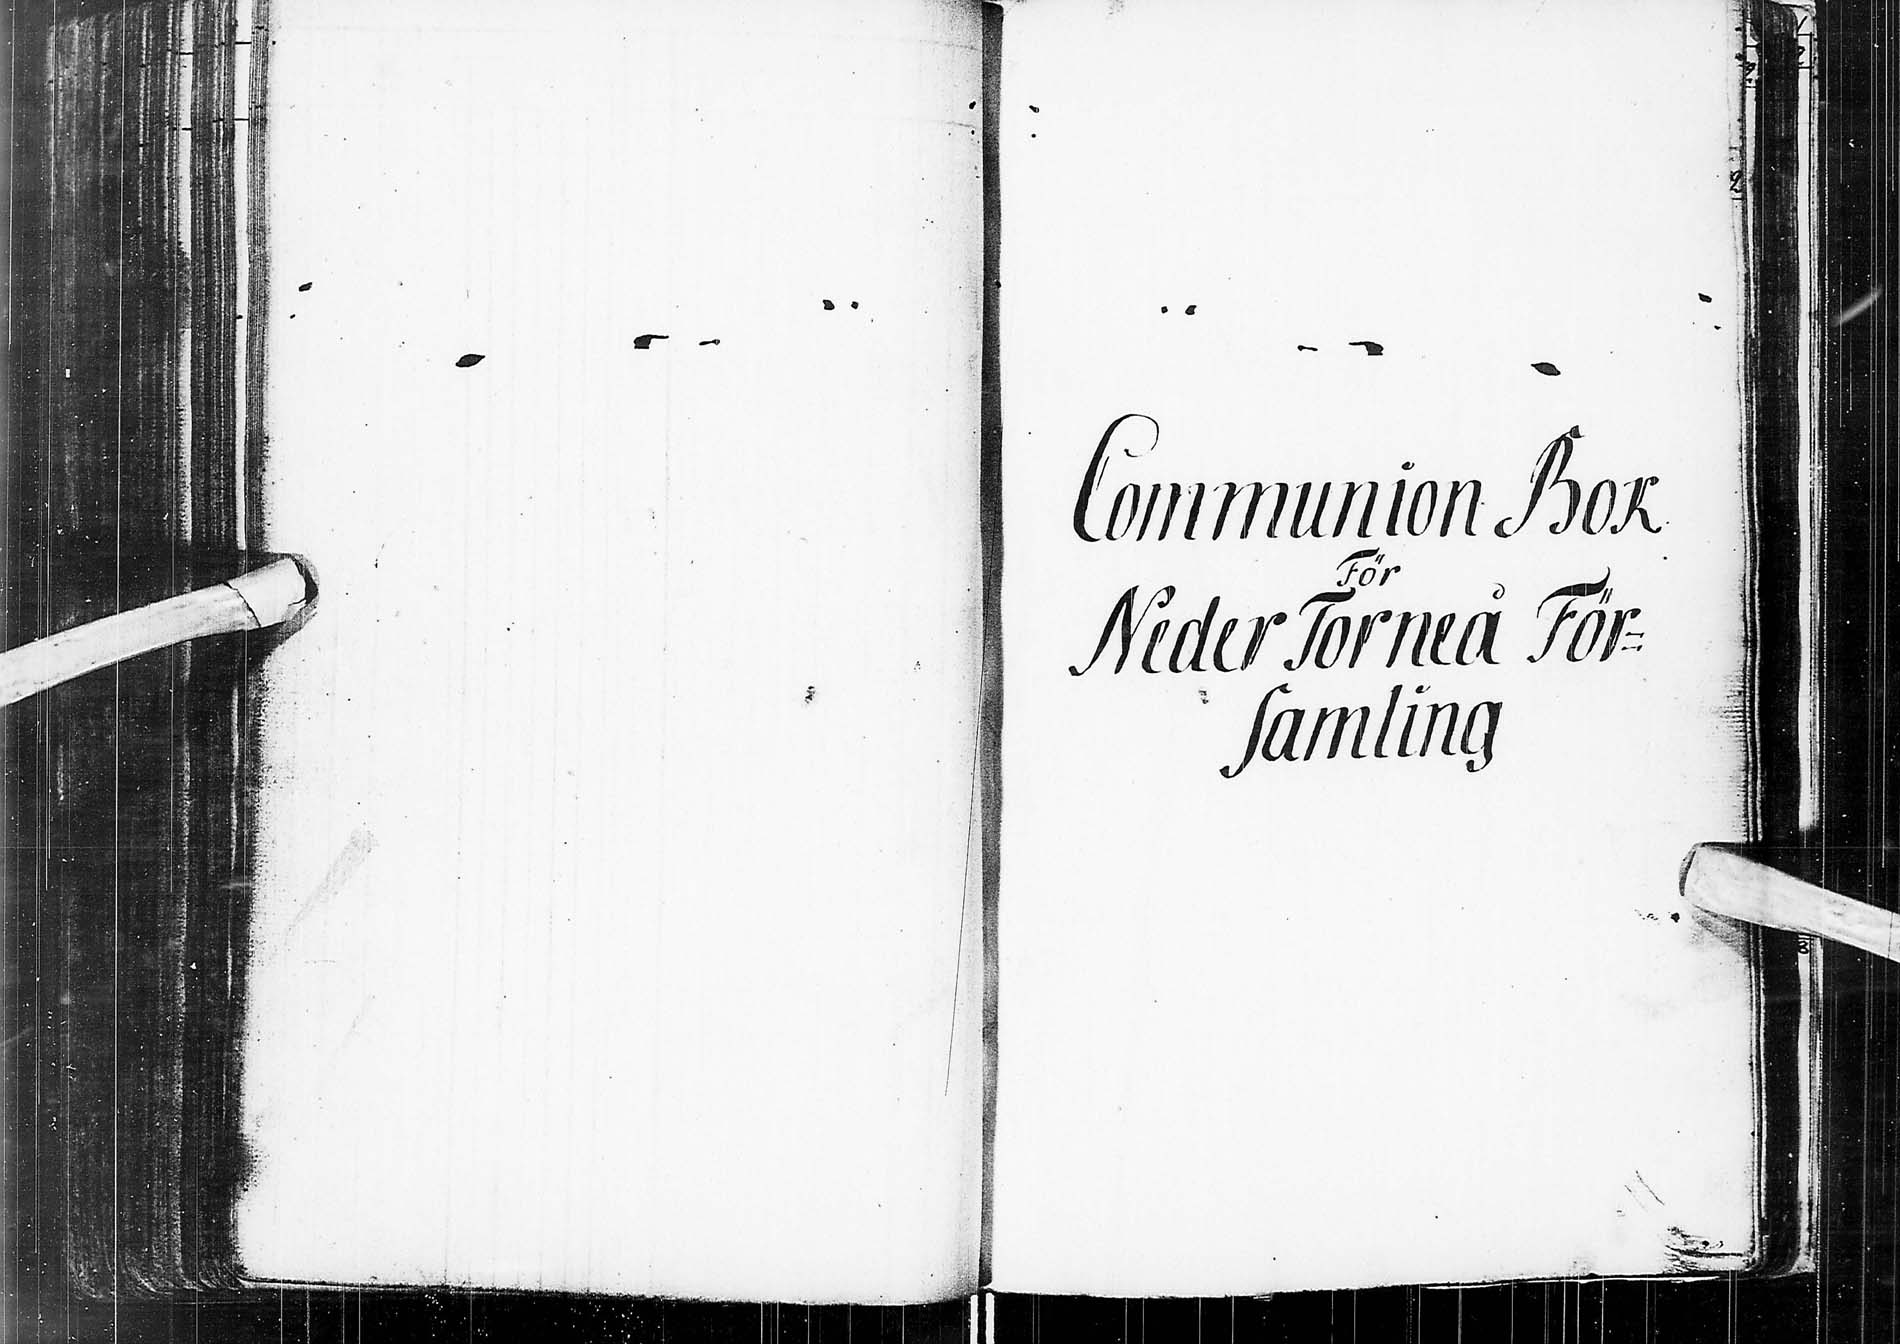 Communion Bok
För
Neder Torneå För=
samling